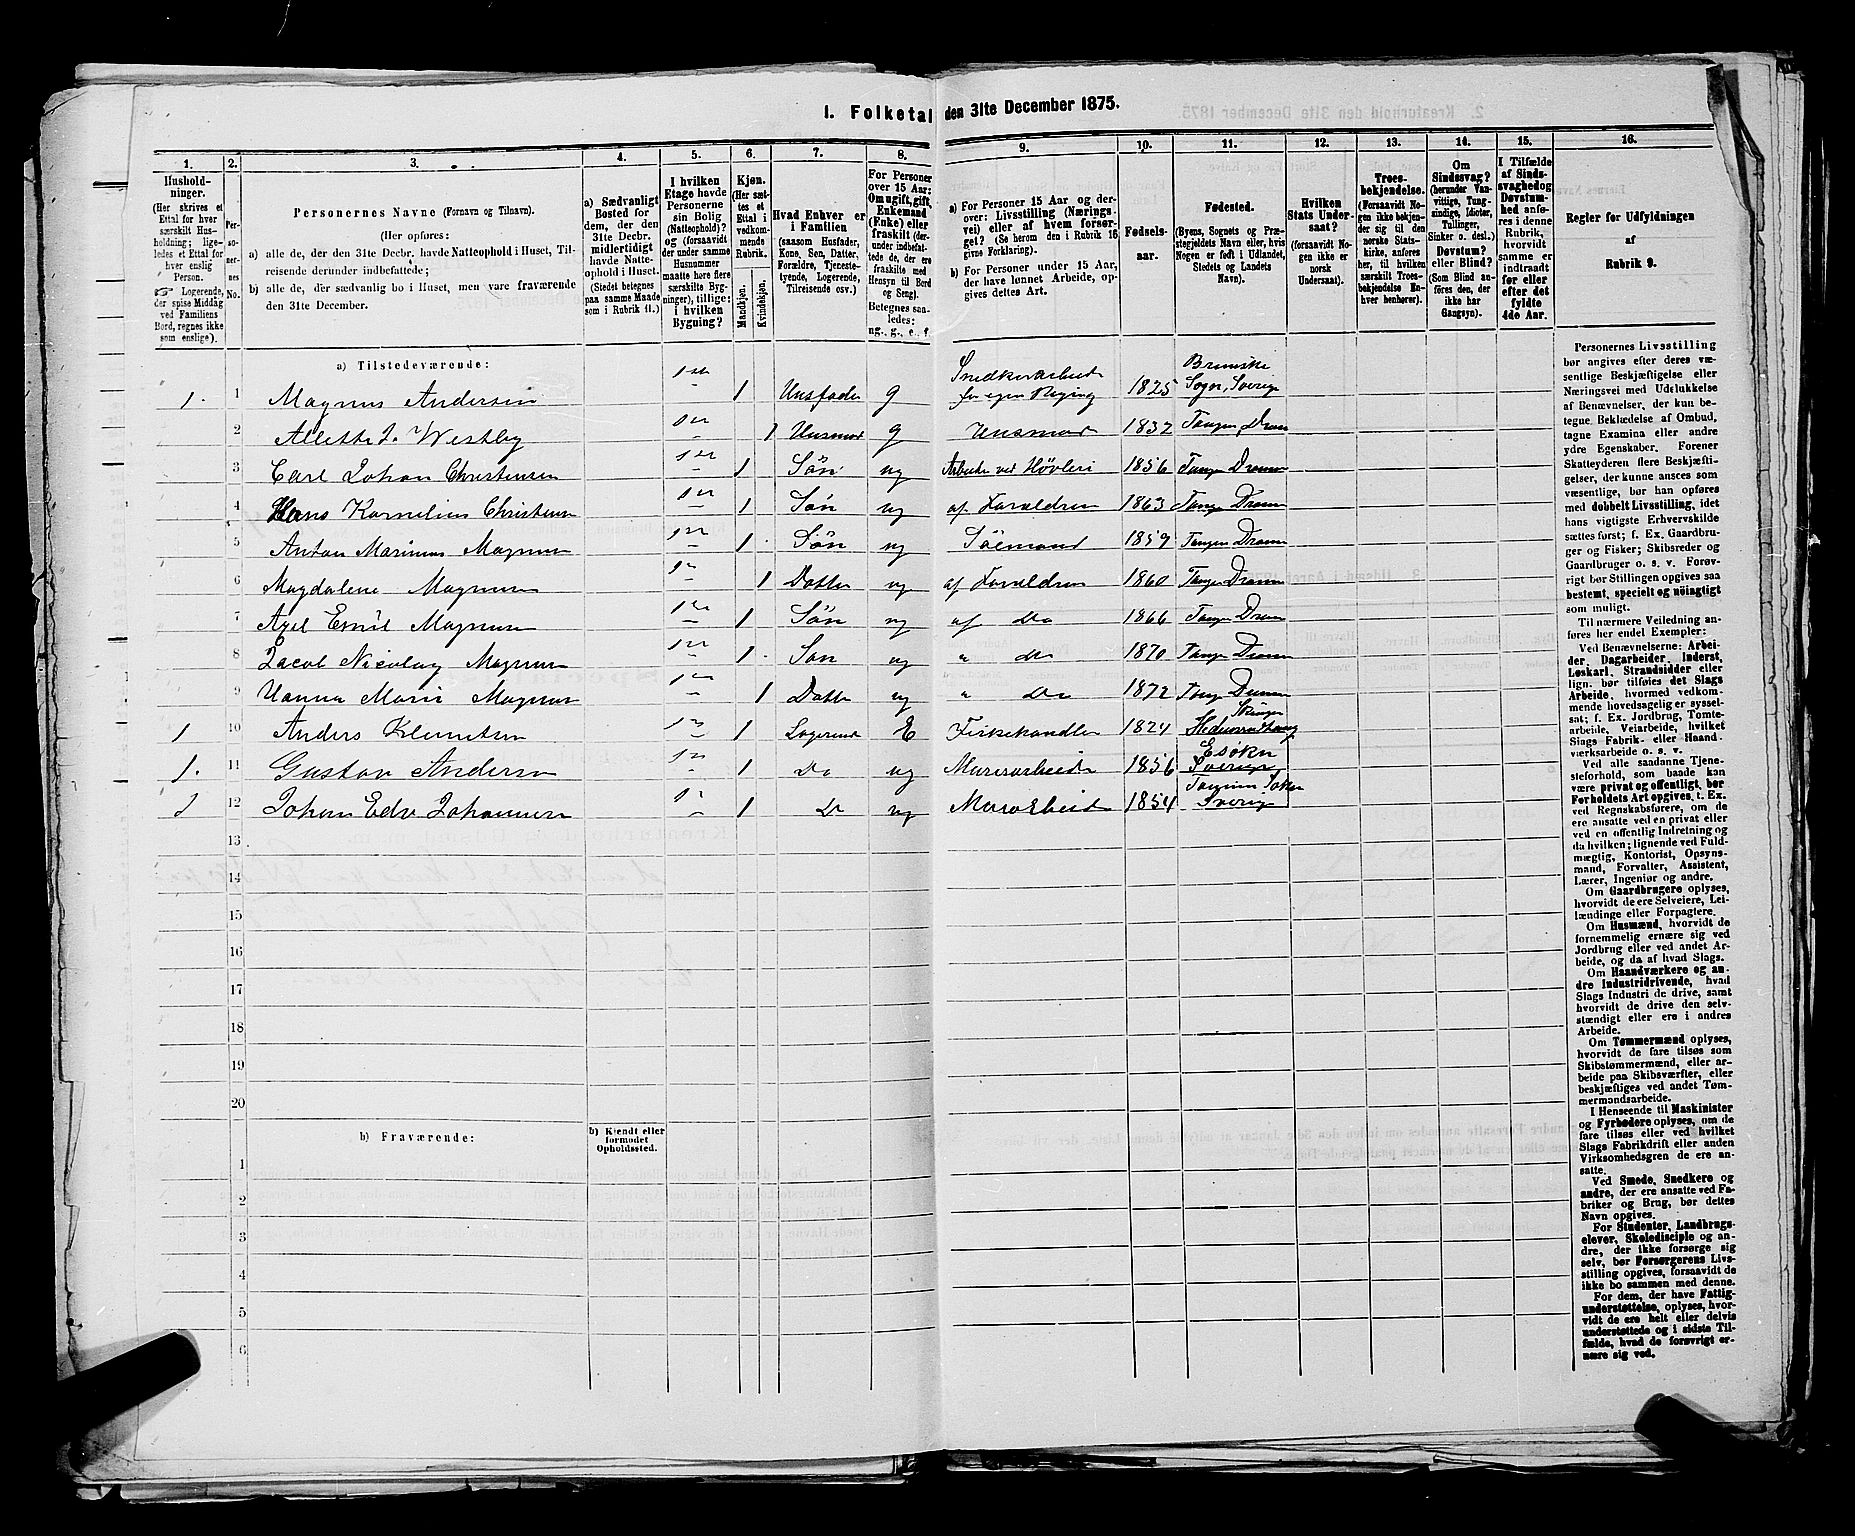 I. Folketal den 31te December 1875.
1. 2. 3. 4. 5. 6. 7. 8. 9. 10. 11. 12. 13. 14. 15. 16.
Hushold-
ninger.
(Her skrives et
Ettal for hver
særskilt Hus-
holdning; lige-
ledes et Ettal for
hver enslig
Person.
Logerende,
der spise Middag
ved Familiens
Bord, regnes ikke
som enslige).
Per-
so-
ner-
nes
No.
Personernes Navne (Fornavn og Tilnavn).
(Her opføres:
a) alle de, der den 31te Decbr. havde Natteophold i Huset, Til-
reisende derunder indbefattede;
b) alle de, der sædvanlig bo i Huset, men vare fraværende
den 31te December.
a) Sædvanligt
Bosted for
dem, der den
31te Decbr.
midlertidigt
havde Natte-
ophold i Huset.
(Stedet betegnes
paa samme Maade
som i Rubrik 11.)
I hvilken
Etage havde
Personerne
sin Bolig
(Natteophold)?
og (forsaavidt
der under samme
Husnummer
maatte høre flere
særskilte Byg-
ninger), tillige:
i hvilken
Bygning?
Kjøn.
(Her sæt-
tes et
Ettal i
vedkom-
mende
Rubrik.
Mandkjøn.
Kvindekjøn.
Hvad Enhver er
i Familien
(saasom Husfader,
Kone, Søn, Datter,
Forældre, Tjeneste-
tyende, Logerende,
Tilreisende osv.)
For Personer
over 15 Aar:
Om ugift, gift,
Enkemand
(Enke) eller
fraskilt (der-
under indbefat-
tede de, der ere
fraskilte med
Hensyn til Bord
og Seng).
Betegnes saa-
ledes:
ug., g., e., f.
a) For Personer 15 Aar og der-
over: Livsstilling (Nærings-
vei) eller af hvem forsør-
get? (Se herom den i Rubrik 16
givne Forklaring).
b) For Personer under 15 Aar,
der have lønnet Arbeide, op-
gives dettes Art.
Fødsels-
aar.
Fødested.
(Byens, Sognets og Præ-
stegjeldets Navn eller, hvis
Nogen er født i Udlandet,
Stedets og Landets
Navn).
Hvilken
Stats Under-
saat?
(forsaavidt No-
gen ikke er
norsk
Undersaat).
Troes-
bekjendelse.
(Forsaavidt No-
gen ikke bekjen-
der sig til den
norske Stats-
kirke, anføres
her, til hvilken
særskilt Troes-
bekjendelse En-
hver henhører).
Om
Sindssvag?
(herunder Van-
vittige, Tung-
sindige, Idioter,
Tullinger,
Sinker o. desl.)
Døvstum?
eller Blind?
(Som Blind an-
føres den, der
ikke har
Gangsyn).
I Tilfælde
af Sinds-
svaghed og
Døvstum-
hed anfø-
res i denne
Rubrik,
hvorvidt
samme er
indtraadt
før eller
efter det
fyldte
4de Aar.
Regler for Udfyldningen
af
Rubrik 9.
a) Tilstedeværende:
1. 1 Magnus Andersen 1 Husfader g Snedkerarbeide for egen Regning 1825 Sogn, Sverige
2 Alette J. Westby 1 Husmor g Husmor 1832 Tangen, Dram
3 Carl Johan Christensen 1 Søn ug Arbeider ved Høvleri 1856 Tangen Dram
4 Hans Kornelius Christensen 1 Søn ug af Forældren 1863 Tangen Dram
5 Anton Marinus Magnus 1 Søn ug Sømand 1859 Tangen Dram
6 Magdalene Magnus 1 Datter ug af Forældren 1860 Tangen Dram
7 Axel Emil Magnus 1 Søn ug af Do 1866 Tangen Dram
8 Jacob Nicolay Magnus 1 Søn ug " do 1870 Tangen Dram
9 Hanna Marie Magnus 1 Datter ug " Do 1872 Tangen Dram
1 10 Anders Klemetsen 1 Logerende E Fiskehandler 1824
1. 11 Gustav Andersen 1 Do ug Murerarbeider 1856 Sverige
1 12 Johan Edv Johannesen 1 Do ug Murerarbeid 1854 Sverige
13
14
15
16
17
18
19
20
b) Fraværende:
b) Kjendt eller
formodet
Opholdssted.
1
2
3
4
5
6
Personernes Livsstilling
bør angives efter deres væ-
sentlige Beskjæftigelse eller
Næringsvei med Udelukkelse
af Benævnelser, der kun be-
tegne Beklædelse af Ombud,
tagne Examina eller andre
ydre Egenskaber. Forener
Skatteyderen flere Beskjæfti-
gelser, der kunne ansees som
væsentlige, bør han opføres
med dobbelt Livsstilling, idet
hans vigtigste Erhvervskilde
sættes først; f. Ex. Gaardbru-
ger og Fisker; Skibsreder og
Gaardbruger o. s. v. Forøv-
rigt bør Stillingen opgives saa
bestemt, specielt og nøiagtigt
som muligt.
Til nærmere Veiledning an-
føres her endel Exempler:
Ved Benævnelserne: Arbei-
der, Dagarbeider, Inderst,
Løskarl, Strandsidder eller
lign. bør tilføies det Slags
Arbeide, hvormed vedkom-
mende hovedsagelig er syssel-
sat; f. Ex. Jordbrug, Tomte-
arbeide, Veiarbeide, hvilket
Slags Fabrik- eller Haand-
værksarbeide o. s. v.
Ved alle saadanne Tjene-
steforhold, som baade kan
være privat og offentligt, bør
Forholdets Art opgives, t. Ex.
ved Regnskabsførere, om de
ere ansatte ved en privat eller
ved en offentlig Indretning og
da hvilken; lignende ved Fuld-
mægtig, Kontorist, Opsyns-
mand, Forvalter, Assistent,
Lærer, Ingeniør og andre.
Om Gaardbrugere oplyses,
hvorvidt de ere Selveiere, Lei-
lændinge eller Forpagtere.
Om Husmænd, hvorvidt de
fornemmelig ernære sig ved
Jordbrug eller ved andet Ar-
beide, og da af hvad Slags.
Om Haandværkere og an-
dre Industridrivende, hvad
Slags Industri de drive, samt
hvorvidt de drive den selv-
stændigt eller ere i andres
Arbeide.
Om Tømmermænd oplyses,
hvorvidt de fare tilsøs som
Skibstømmermænd, eller ar-
beide paa Skibsværfter, eller
beskjæftiges ved andet Tøm-
mermandsarbeide.
I Henseende til Maskinister
og Fyrbødere oplyses, om de
fare tilsøs eller ved hvilket
Slags Fabrikdrift eller anden
Virksomhedsgren de ere an-
satte.
Ved Smede, Snedkere og
andre, der ere ansatte ved Fa-
briker og Brug, bør dettes
Navn opgives.
For Studenter, Landbrugs-
elever, Skoledisciple og an-
dre, der ikke forsørge sig
selv, bør Forsørgerens Livs-
stilling opgives, forsaavidt de
ikke bo sammen med denne.
For dem, der have Fattig-
understøttelse, oplyses, hvor-
vidt de ere helt eller delvis
understøttede og i sidste Til-
fælde, hvad de forøvrigt er-
nære sig ved.